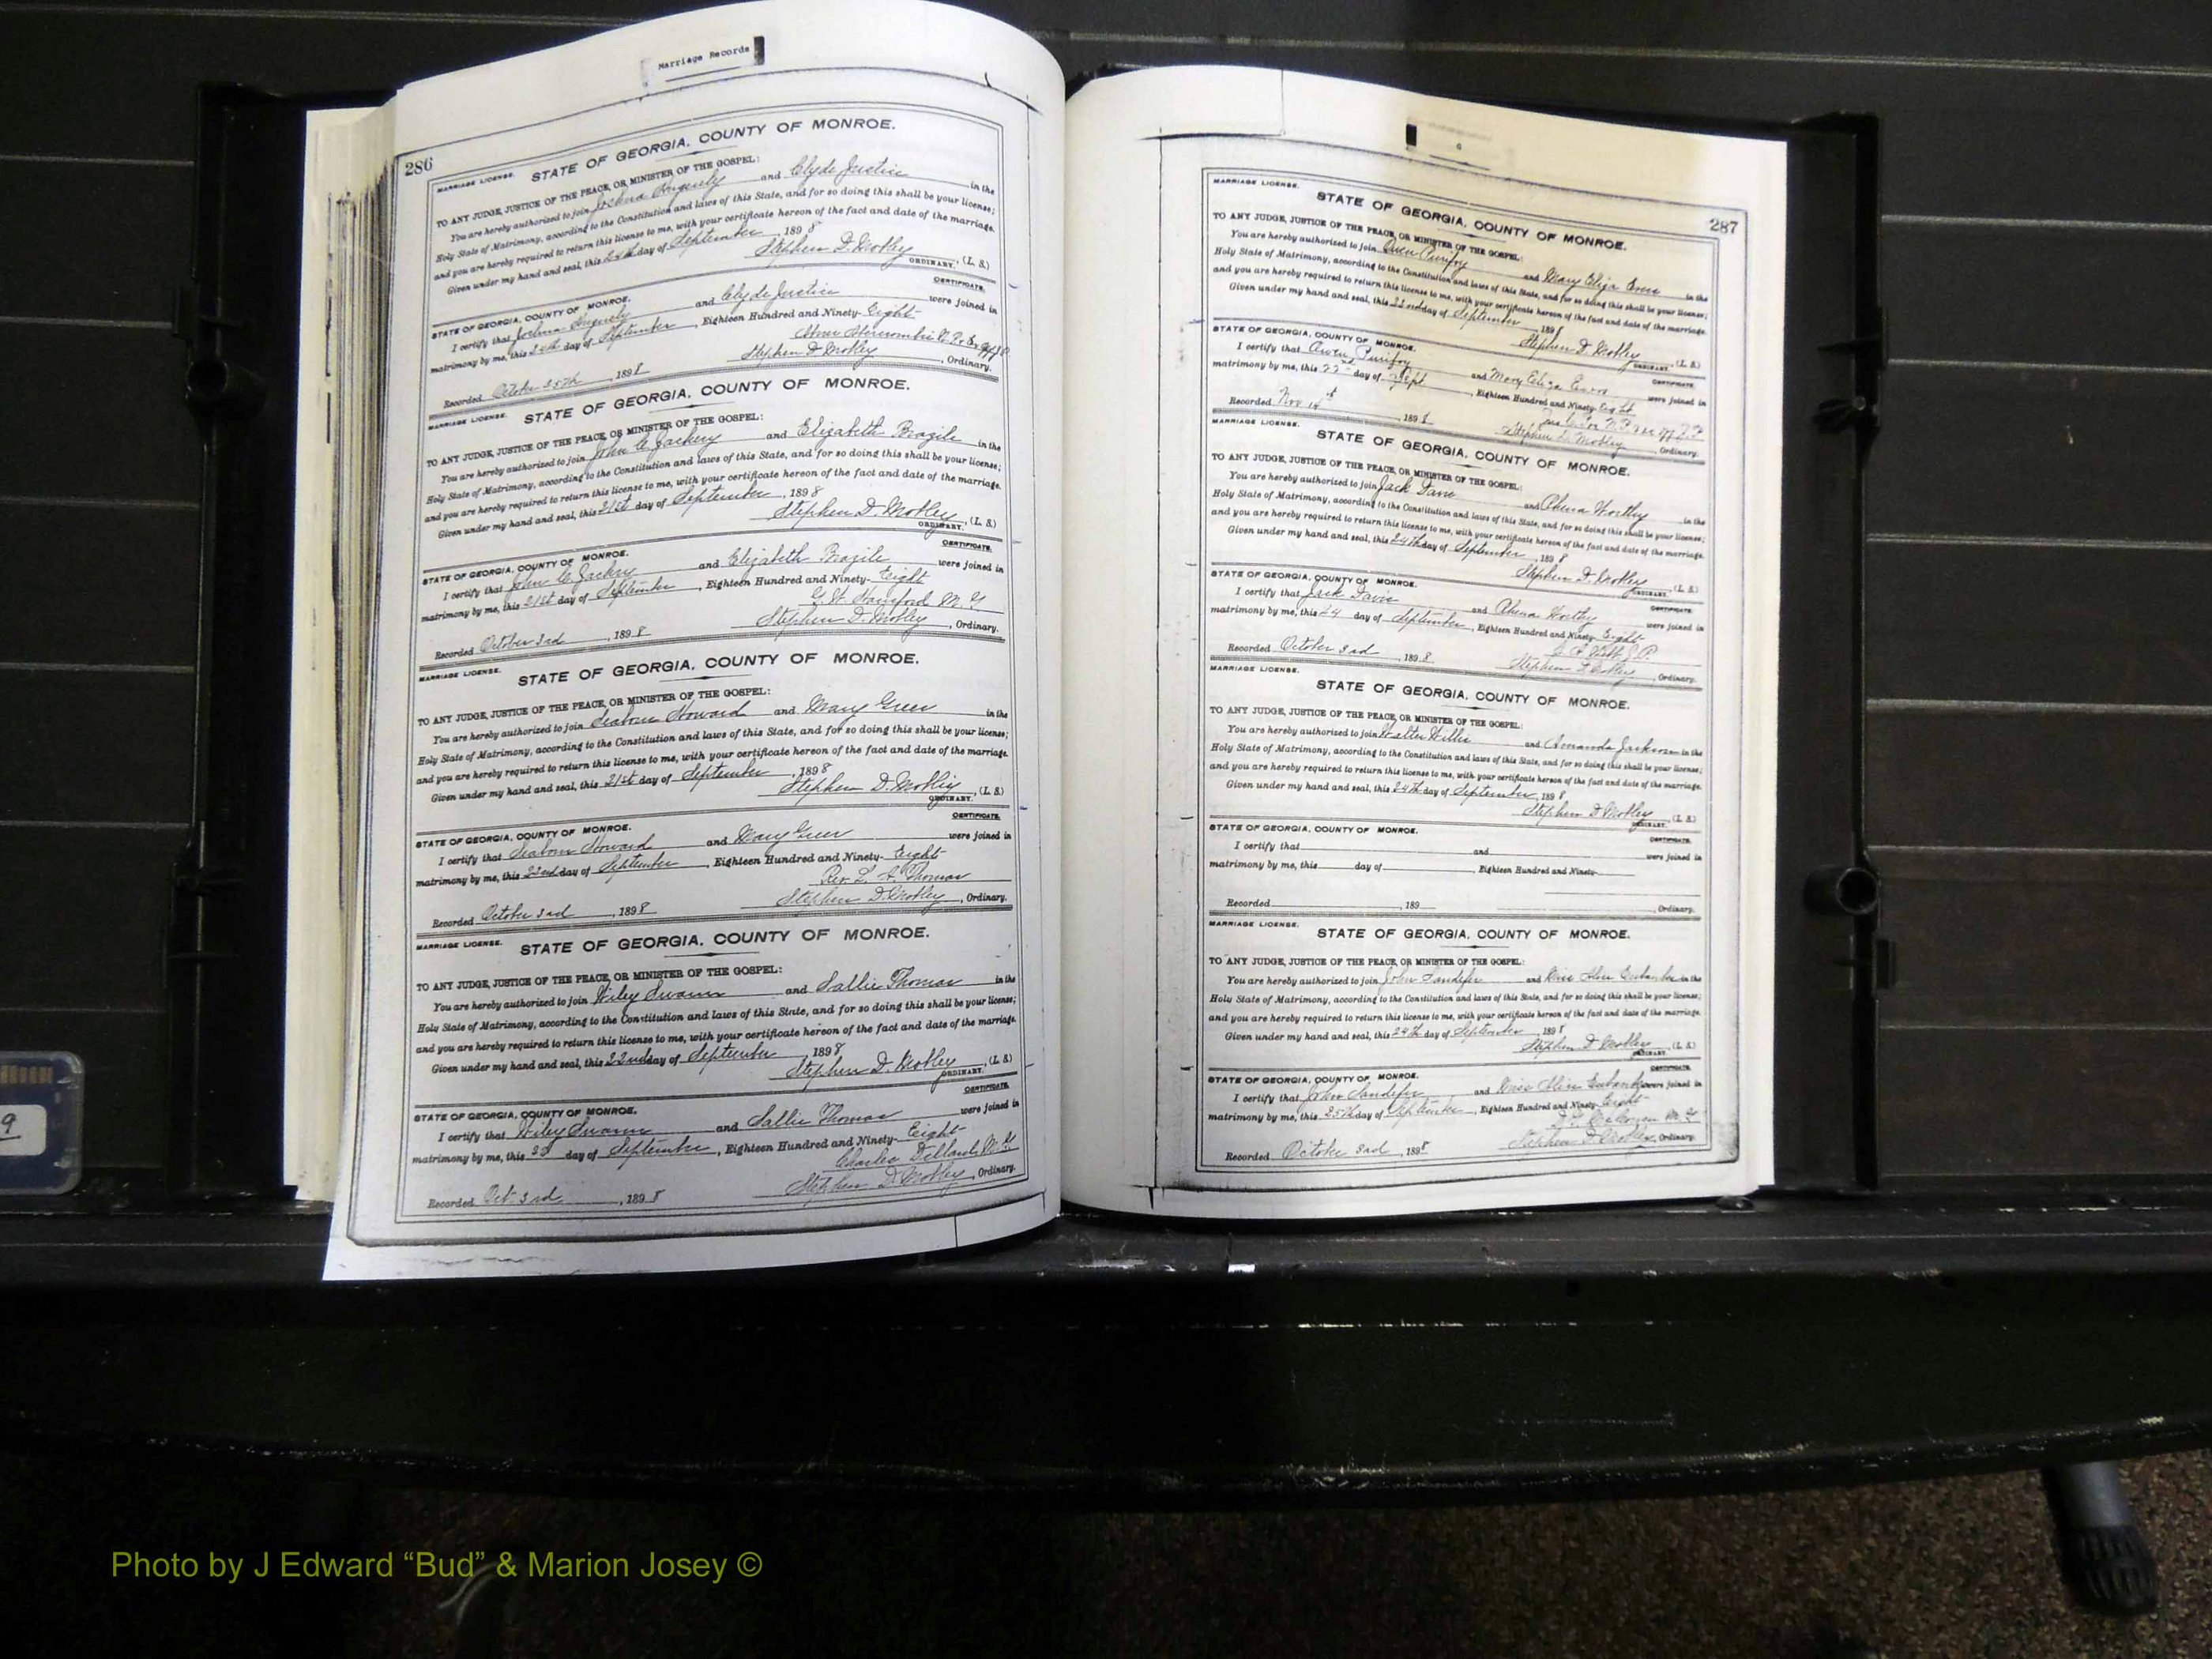 Marriage Records
286
MARRIAGE LICENSE. STATE OF GEORGIA, COUNTY OF MONROE.
TO ANY JUDGE, JUSTICE OF THE PEACE, OR MINISTER OF THE GOSPEL:
You are hereby authorized to join Joshua and Clyde Justice in the
Holy State of Matrimony, according to the Constitution and laws of this State, and for so doing this shall be your license;
and you are hereby required to return this license to me, with your certificate hereon of the fact and date of the marriage.
Given under my hand and seal, this 24th day of September, 1898
Stephen D. Mobley (L. S.)
ORDINARY.
CERTIFICATE.
STATE OF GEORGIA, COUNTY OF MONROE.
I certify that Joshua and Clyde Justice were joined in
matrimony by me, this day of September, Eighteen Hundred and Ninety-Eight
Abner Abercrombie
Stephen D. Mobley, Ordinary.
Recorded October 25th, 1898
MARRIAGE LICENSE. STATE OF GEORGIA, COUNTY OF MONROE.
TO ANY JUDGE, JUSTICE OF THE PEACE, OR MINISTER OF THE GOSPEL:
You are hereby authorized to join John C. Zackery and Elizabeth Brazile in the
Holy State of Matrimony, according to the Constitution and laws of this State, and for so doing this shall be your license;
and you are hereby required to return this license to me, with your certificate hereon of the fact and date of the marriage.
Given under my hand and seal, this 21st day of September, 1898
Stephen D. Mobley, (L. S.)
ORDINARY.
CERTIFICATE.
STATE OF GEORGIA, COUNTY OF MONROE.
I certify that John C. Zackry and Elizabeth Brazile were joined in
matrimony by me, this 21st day of September, Eighteen Hundred and Ninety-Eight
M. G.
Stephen D. Mobley, Ordinary.
Recorded October 3rd, 1898
MARRIAGE LICENSE. STATE OF GEORGIA, COUNTY OF MONROE.
TO ANY JUDGE, JUSTICE OF THE PEACE, OR MINISTER OF THE GOSPEL:
You are hereby authorized to join Seaborn Howard and Mary Greer in the
Holy State of Matrimony, according to the Constitution and laws of this State, and for so doing this shall be your license;
and you are hereby required to return this license to me, with your certificate hereon of the fact and date of the marriage.
Given under my hand and seal, this 21st day of September, 1898
Stephen D. Mobley, (L. S.)
ORDINARY.
CERTIFICATE.
STATE OF GEORGIA, COUNTY OF MONROE.
I certify that Seaborn Howard and Mary Greer were joined in
matrimony by me, this 22nd day of September, Eighteen Hundred and Ninety-Eight
Rev. Thomas
Stephen D. Mobley, Ordinary.
Recorded October 3rd, 1898
MARRIAGE LICENSE. STATE OF GEORGIA, COUNTY OF MONROE.
TO ANY JUDGE, JUSTICE OF THE PEACE, OR MINISTER OF THE GOSPEL:
You are hereby authorized to join Wiley Swann and Sallie Thomas in the
Holy State of Matrimony, according to the Constitution and laws of this State, and for so doing this shall be your license;
and you are hereby required to return this license to me, with your certificate hereon of the fact and date of the marriage.
Given under my hand and seal, this 22nd day of September, 1898
Stephen D. Mobley, (L. S.)
ORDINARY.
CERTIFICATE.
STATE OF GEORGIA, COUNTY OF MONROE.
I certify that Wiley Swann and Sallie Thomas were joined in
matrimony by me, this day of September, Eighteen Hundred and Ninety-Eight
Charles M. G.
Stephen D. Mobley, Ordinary.
Recorded Oct. 3rd, 1898
287
MARRIAGE LICENSE.
STATE OF GEORGIA, COUNTY OF MONROE.
TO ANY JUDGE, JUSTICE OF THE PEACE, OR MINISTER OF THE GOSPEL:
You are hereby authorized to join Owen Purifoy and Mary Eliza in the
Holy State of Matrimony, according to the Constitution and laws of this State, and for so doing this shall be your license;
and you are hereby required to return this license to me, with your certificate hereon of the fact and date of the marriage.
Given under my hand and seal, this 22nd day of September, 1898
Stephen D. Mobley (L. S.)
ORDINARY.
CERTIFICATE.
STATE OF GEORGIA, COUNTY OF MONROE.
I certify that Owen Purifoy and Mary Eliza were joined in
matrimony by me, this 22nd day of Sept, Eighteen Hundred and Ninety-Eight
Stephen D. Mobley, Ordinary.
Recorded Nov, 1898
MARRIAGE LICENSE.
STATE OF GEORGIA, COUNTY OF MONROE.
TO ANY JUDGE, JUSTICE OF THE PEACE, OR MINISTER OF THE GOSPEL:
You are hereby authorized to join Jack and Worthy in the
Holy State of Matrimony, according to the Constitution and laws of this State, and for so doing this shall be your license;
and you are hereby required to return this license to me, with your certificate hereon of the fact and date of the marriage.
Given under my hand and seal, this 24th day of September, 1898
Stephen D. Mobley (L. S.)
ORDINARY.
CERTIFICATE.
STATE OF GEORGIA, COUNTY OF MONROE.
I certify that Jack Davis and Worthy were joined in
matrimony by me, this 24 day of September, Eighteen Hundred and Ninety-Eight
J. P.
Stephen D. Mobley, Ordinary.
Recorded October 3rd, 1898
MARRIAGE LICENSE.
STATE OF GEORGIA, COUNTY OF MONROE.
TO ANY JUDGE, JUSTICE OF THE PEACE, OR MINISTER OF THE GOSPEL:
You are hereby authorized to join Walter Willis and Amanda Jackson in the
Holy State of Matrimony, according to the Constitution and laws of this State, and for so doing this shall be your license;
and you are hereby required to return this license to me, with your certificate hereon of the fact and date of the marriage.
Given under my hand and seal, this 24th day of September, 1898
Stephen D. Mobley (L. S.)
ORDINARY.
CERTIFICATE.
STATE OF GEORGIA, COUNTY OF MONROE.
I certify that and were joined in
matrimony by me, this day of, Eighteen Hundred and Ninety-
Recorded, 189 , Ordinary.
MARRIAGE LICENSE.
STATE OF GEORGIA, COUNTY OF MONROE.
TO ANY JUDGE, JUSTICE OF THE PEACE, OR MINISTER OF THE GOSPEL:
You are hereby authorized to join John Sandefer and Miss Eubanks in the
Holy State of Matrimony, according to the Constitution and laws of this State, and for so doing this shall be your license;
and you are hereby required to return this license to me, with your certificate hereon of the fact and date of the marriage.
Given under my hand and seal, this 24th day of September, 1898
Stephen D. Mobley (L. S.)
ORDINARY.
CERTIFICATE.
STATE OF GEORGIA, COUNTY OF MONROE.
I certify that John Sandefer and Miss Eubanks were joined in
matrimony by me, this 25th day of September, Eighteen Hundred and Ninety-Eight
M. G.
Stephen D. Mobley, Ordinary.
Recorded October 3rd, 1898
9
Photo by J Edward “Bud” & Marion Josey ©